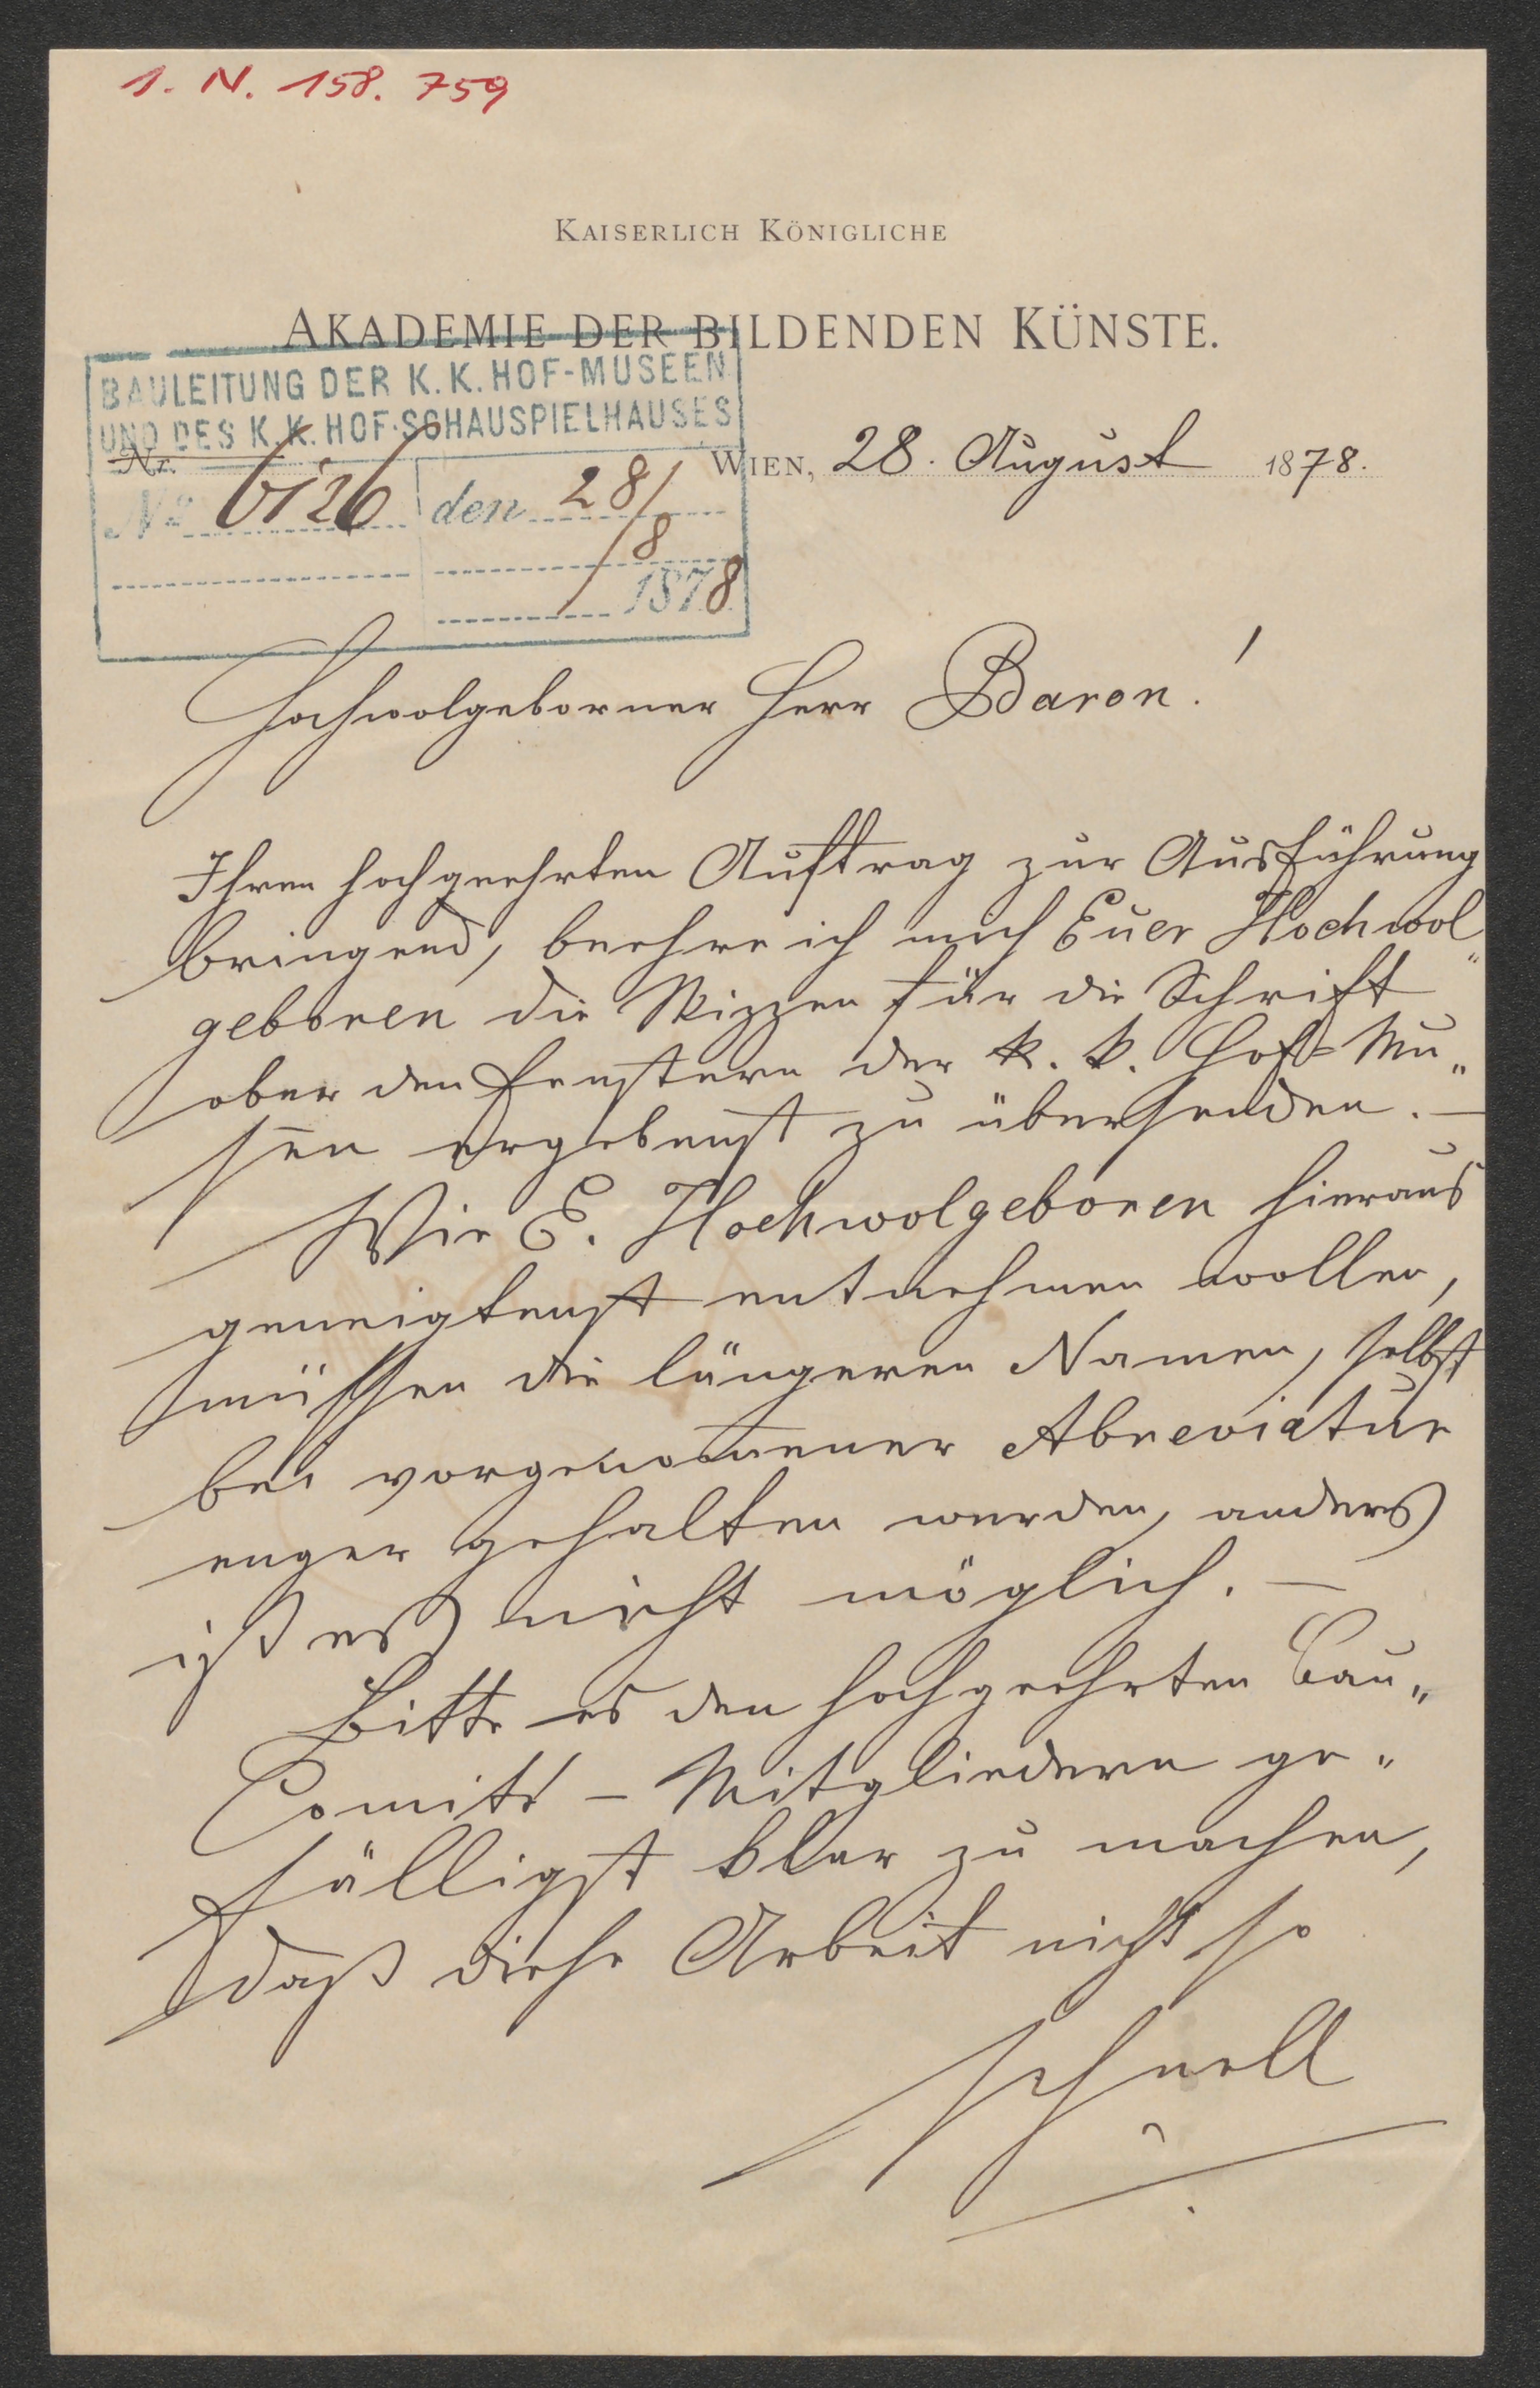 1. N. 158. 759
KAISERLICH KÖNIGLICHE
AKADEMIE DER BILDENDEN KÜNSTE.
BAULEITUNG DER K. K. HOF-MUSEEN
UND DES K. K. HOF-SCHAUSPIELHAUSES
Nr.
No 6126 den 28/
/8
1878
WIEN, 28. August 1878.
Hochwolgeborner Herr Baron!
Ihren hochgeehrten Auftrag zur Ausführung
bringend, beehre ich mich Euer Hochwol„
geboren die Skizzen für die Schrift
ober den Fenstern der k. k. Hof=Mu„
seen ergebenst zu übersenden. —
Wie E. Hochwolgeboren hieraus
geneigtenst entnehmen wollen,
müssen die längeren Namen, selbst
bei vorgenomener Abreviatur
enger gehalten werden, anders
ist es nicht möglich. —
Bitte es den hochgeehrten Bau„
Comité – Mitgliedern ge„
fälligst klar zu machen,
daß diese Arbeit nicht so
schnell